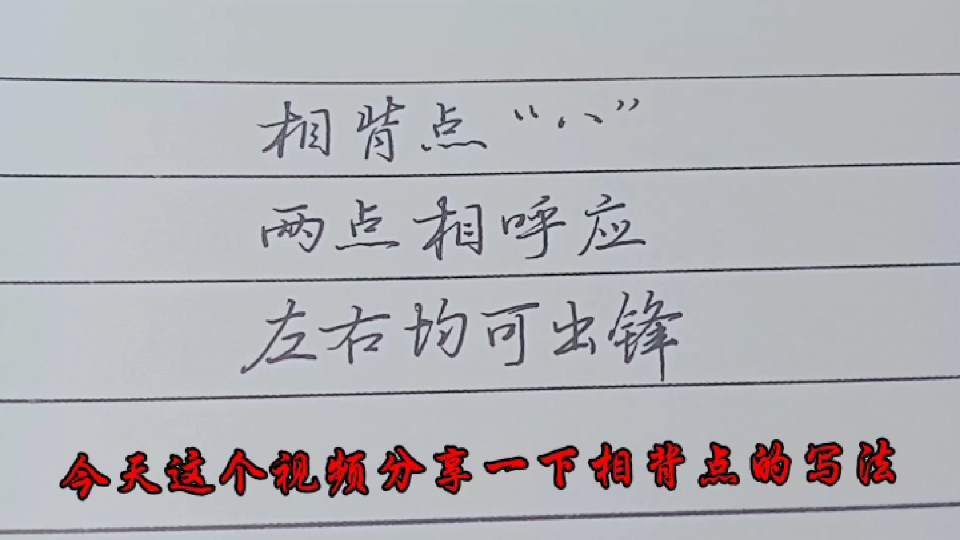 相背点“八”
两点相呼应
左右均可出锋
今天这个视频分享一下相背点的写法